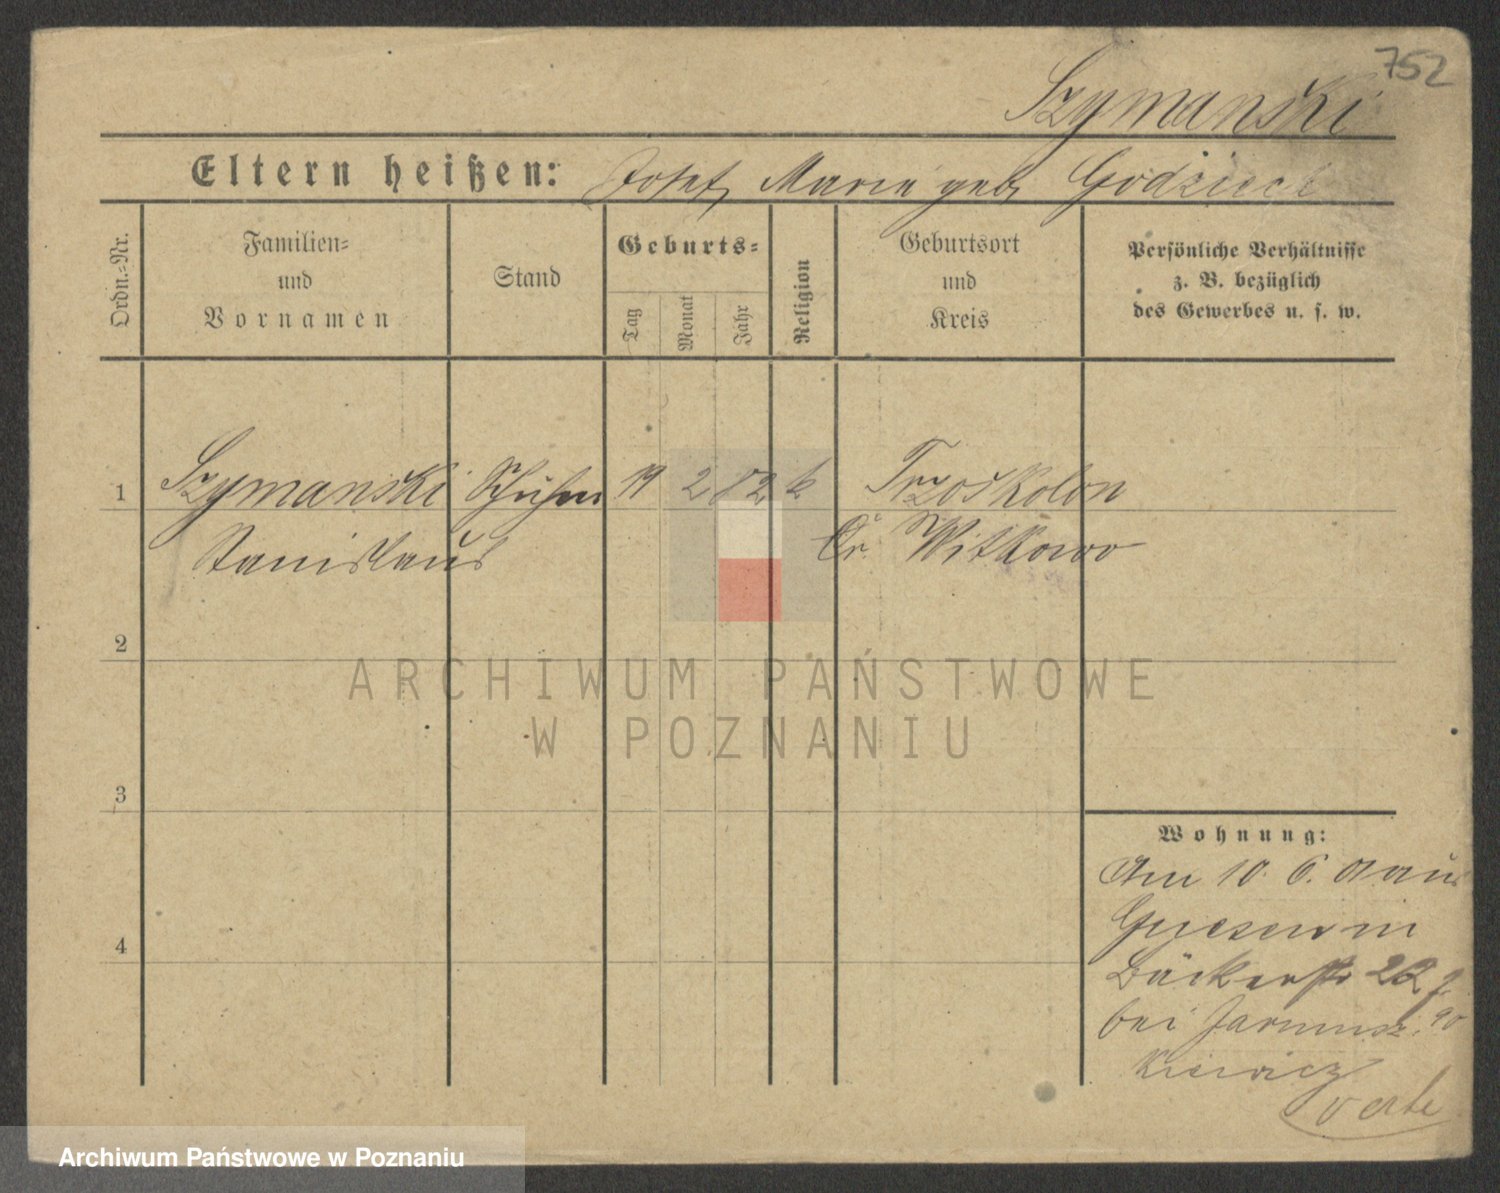 752
Szymanski
Eltern heißen: Josef, Marie geb. Godziech
Ordn.=Nr.
Familien=
und
Vornamen
Stand
Geburts=
Tag
Monat
Jahr
Religion
Geburtsort
und
Kreis
Persönliche Verhältnisse
z. B. bezüglich
des Gewerbes u. s. w.
1 Szymanski 19 2 82 k Trzoskolon
Stanislaus Kr. Witkowo
2
3
4
ARCHIWUM PAŃSTWOWE
W POZNANIU
Wohnung:
Am 10. 6. aus
Gnesen in
Bäckerstr 22
bei Jarmusz
kiewicz
verte
Archiwum Państwowe w Poznaniu